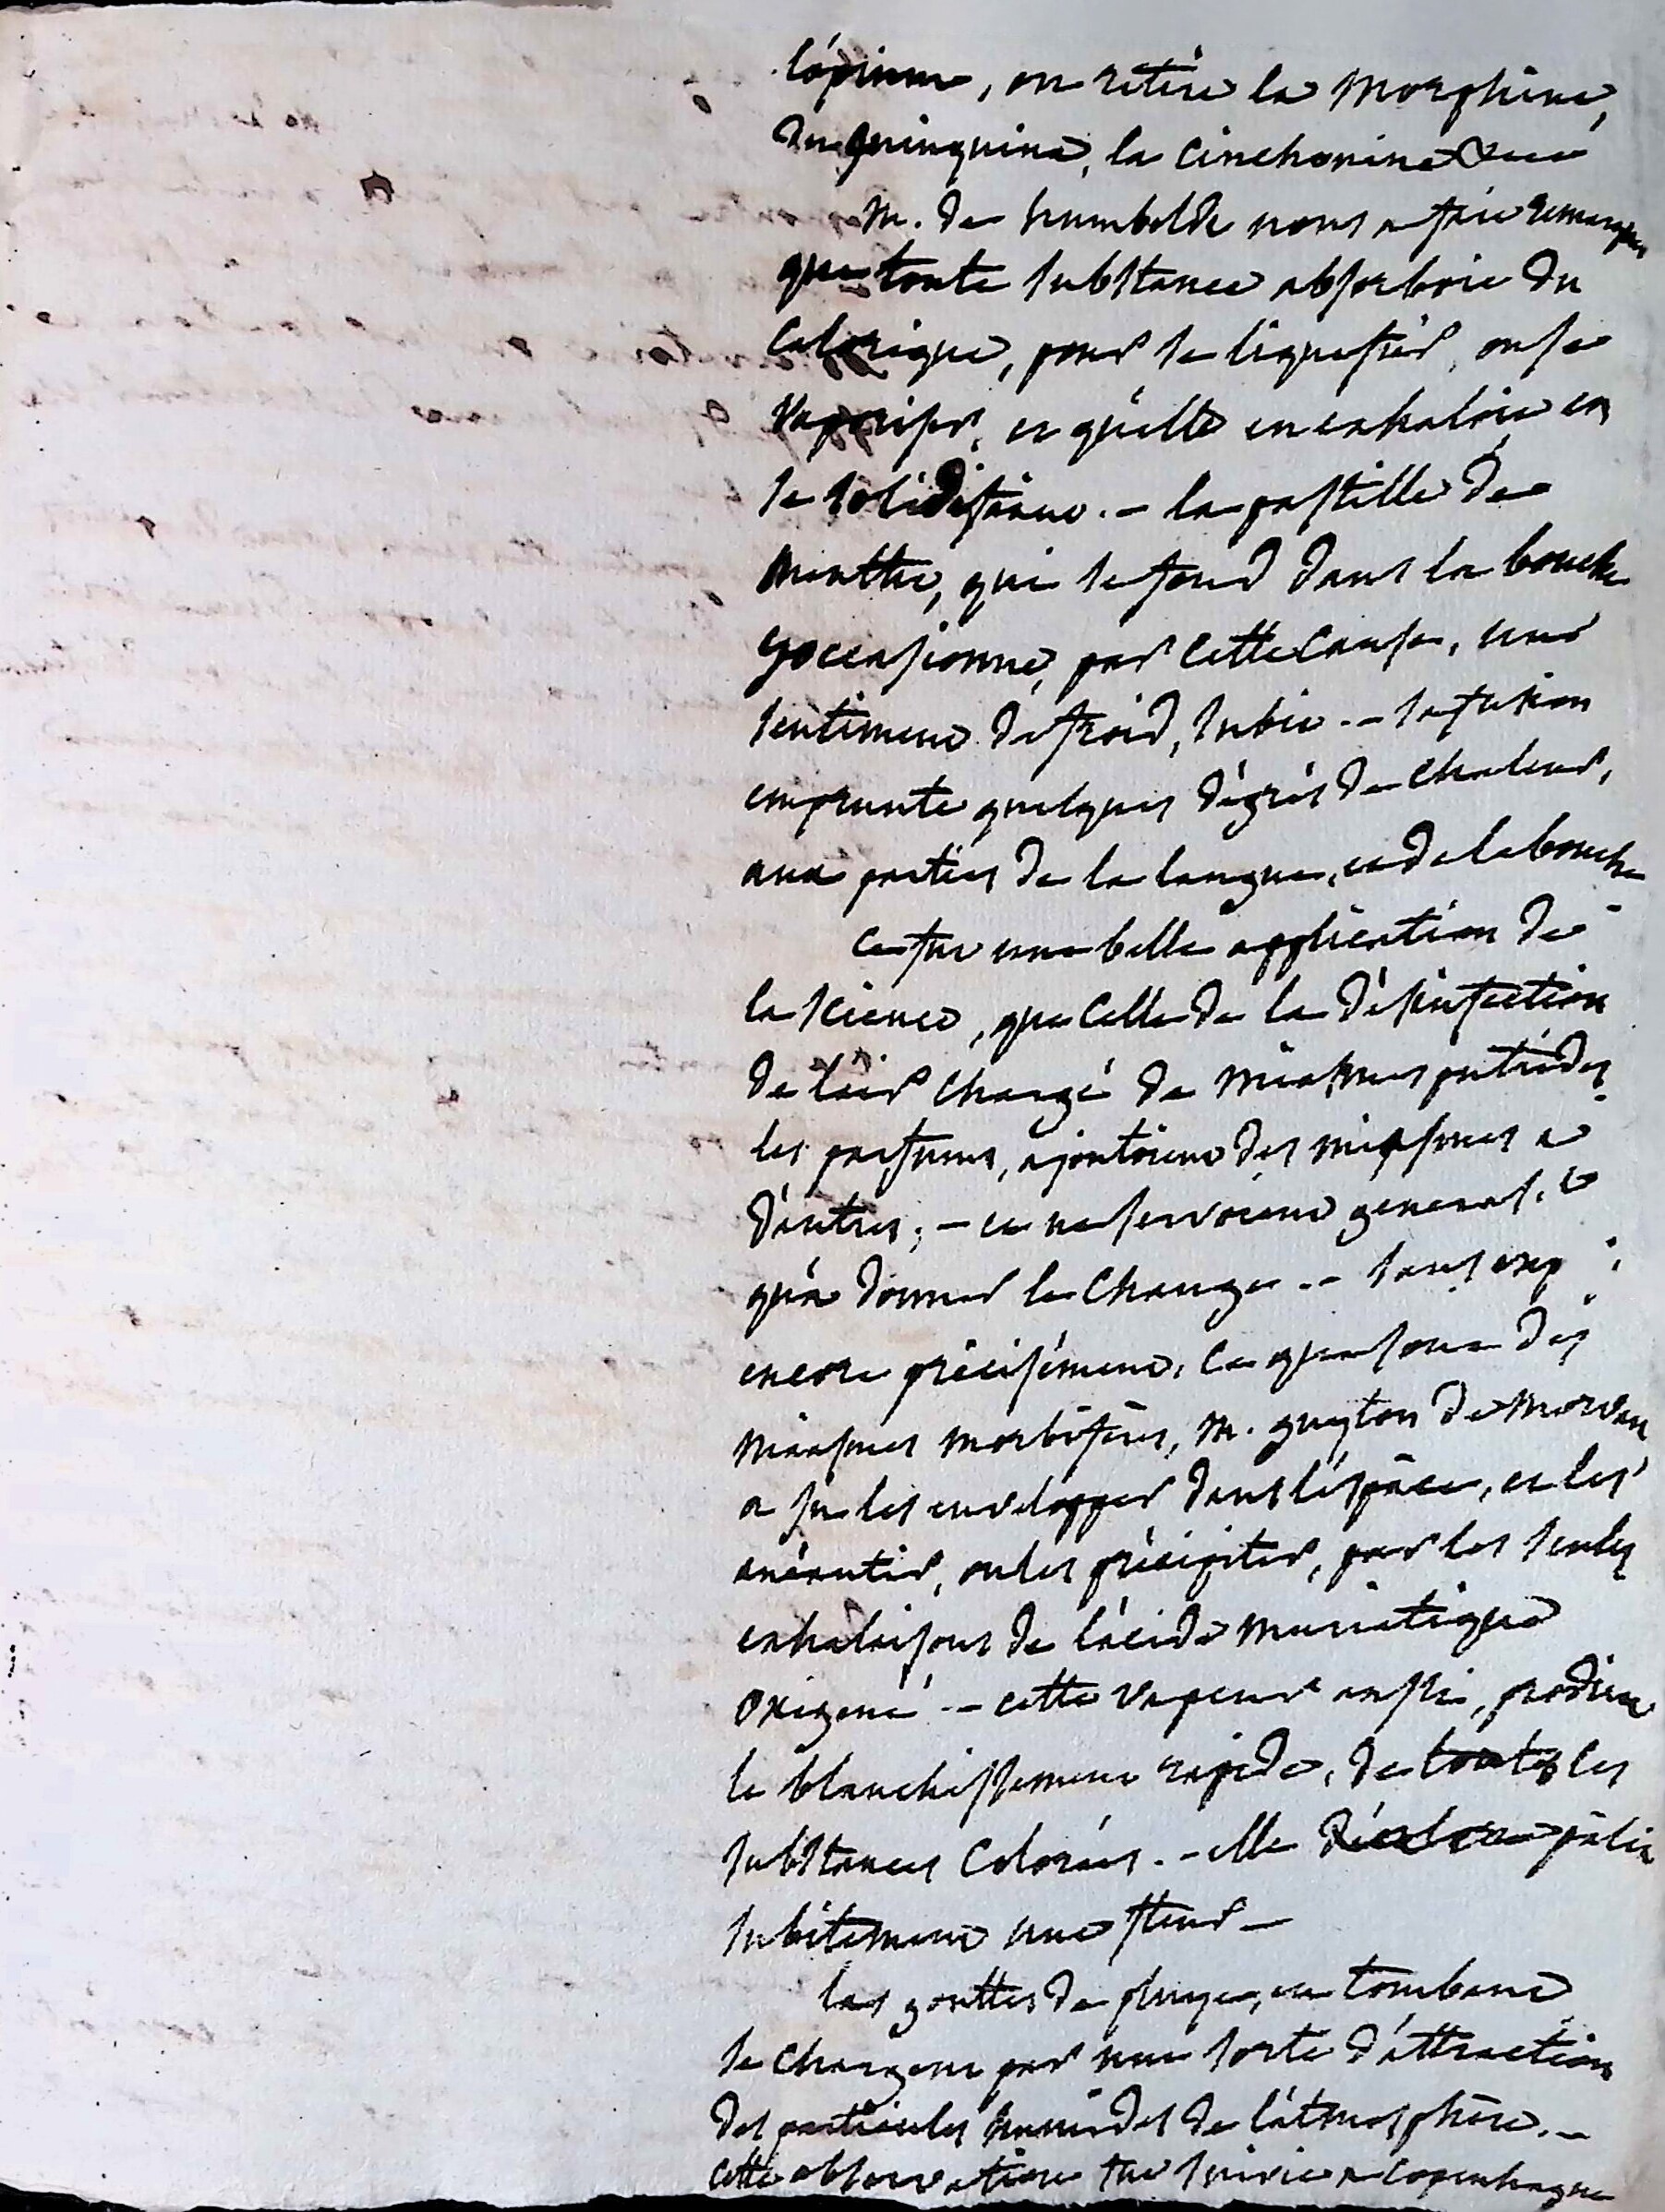 l'opium, on retire la morphine,
du quinquina, la cinchonine &c
M. de humboldt nous a fait remarquer
que toute substance absorboit du
calorique, pour se liquéfier, ou se
vaporiser, et qu'elle en exhaloit en
se solidifiant. - la pastille de
menthe, qui se fond dans la bouche
y occasionne, par cette cause, un
sentiment de froid, subit. - sa fusion
emprunte quelques dégrés de chaleur,
aux parties de la langue, et de la bouche
ce fut une belle application de
la science, que celle de la désinfection
de l'air chargé de miasmes putrides
les parfums, ajoutoient des miasmes a
d'autres; - et ne servoient general.t
qu'a donner le change. - sans
encore précisément, ce que sont des
miasmes morbifères, M. guyton de Morveau
a su les envelopper dans l'espace, et les
anéantir, ou les précipiter, par les seules
exhalaisons de l'acide muriatique
oxigené. - cette vapeur aussi, produit
le blanchissement rapide, de toutes les
substances colorées. - elle pâlit
subitement une fleur -
les gouttes de pluye, en tombant
se chargent par une sorte d'attraction
des particules humides de l'atmosphère. -
cette observation fut suivie a Copenhague